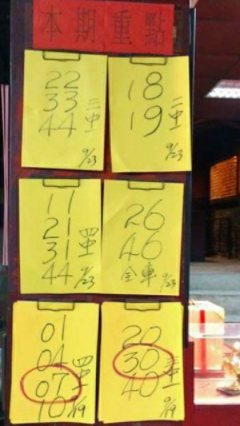 本期重點
22
33
44
三中
9/23
18
19
二中
9/23
11
21
31
44
四中
9/23
26
46
全車
9/23
01
04
07
10
四中
9/19
20
30
40
三中
9/19